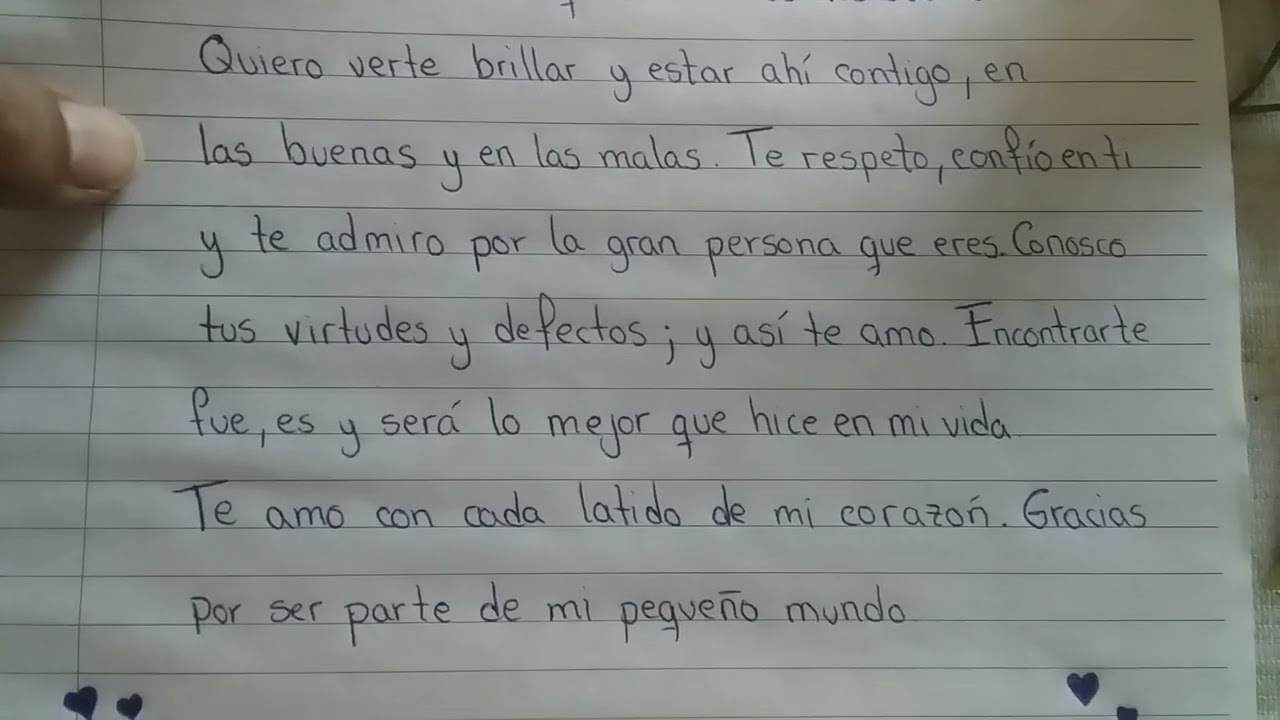 Quiero verte brillar y estar ahí contigo, en
las buenas y en las malas. Te respeto, confío en ti
y te admiro por la gran persona que eres. Conosco
tus virtudes y defectos; y así te amo. Encontrarte
fue, es y será lo mejor que hice en mi vida
Te amo con cada latido de mi corazoń. Gracias
por ser parte de mi pequeño mundo